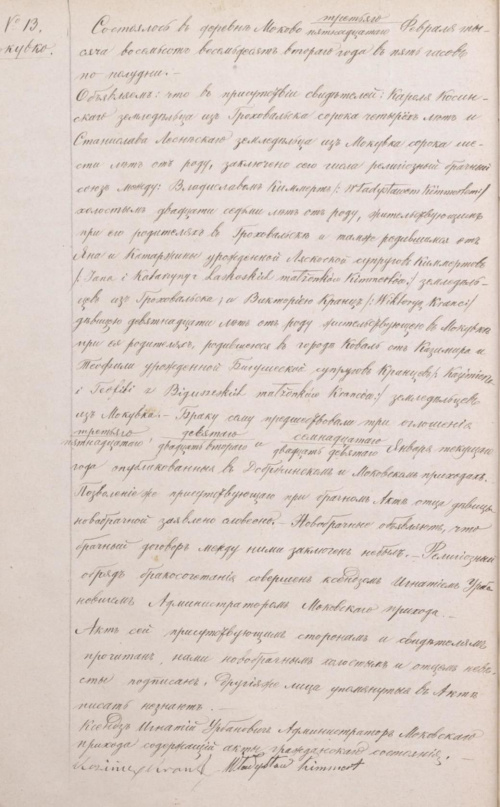 № 13.
Состоялось въ деревнѣ Моково третьяго пятнадцатаго Февраля ты-
сяча восемьсотъ восемьдесятъ втораго года въ пять часовъ
по полудни. —
Объявляемъ: что въ присутствіи свидѣтелей: Кароля Косин-
скаго земледѣльца изъ Гроховальска сорока четырехъ лѣтъ и
Станислава земледѣльца изъ Мокувка сорока
лѣтъ отъ роду, заключенъ сего числа религіозный брачный
союзъ между: Владиславомъ Киммертъ /: Władysławem Kimmertem :/
холостымъ двадцати семи лѣтъ отъ роду, жительствующимъ
при его родителяхъ въ Гроховальскѣ и тамже родившимся отъ
Яна и Катаржины урожденной Ляскоской супруговъ Киммертовъ
/: Jana i Katarzyny z Laskoskich małżonków Kimmertów :/ земледѣль-
цевъ изъ Гроховальска; и Викторіею Кранцъ /: Wiktoryą Kranc :/
дѣвицею девятнадцати лѣтъ отъ роду жительствующею въ Мокувкѣ
при ея родителяхъ, родившеюся въ городѣ Коваль отъ Казимира и
Теофили урожденной супруговъ Кранцовъ /: Kazimierza
i Teofili z małżonków Kranców :/ земледѣльцовъ
изъ Мокувка. — Браку сему предшествовали три оглашенія
третьяго девятаго семнадцатаго
пятнадцатаго, двадцать втораго и двадцать девятаго Января текущаго
года опубликованныя въ Добржинскомъ и Моковскомъ приходахъ. —
Позволеніе же присутствующаго при брачномъ Актѣ отца дѣвицы
новобрачной заявлено словесно. — Новобрачные объявляютъ, что
брачный договоръ между ними заключенъ небылъ. — Религіозный
обрядъ бракосочетанія совершенъ ксендзомъ Игнатіемъ Урба-
новичемъ Администраторомъ Моковскаго прихода. —
Актъ сей присутствующимъ сторонамъ и свидѣтелямъ
прочитанъ, нами новобрачнымъ холостымъ и отцемъ невѣ-
сты подписанъ, другія же лица упомянутыя въ Актѣ
писать незнаютъ. —
Ксендзъ Игнатій Урбановичъ Администраторъ Моковскаго
прихода содержащій акты гражданскаго состоянія.
Kazimierz Kranc Władysław Kimmert